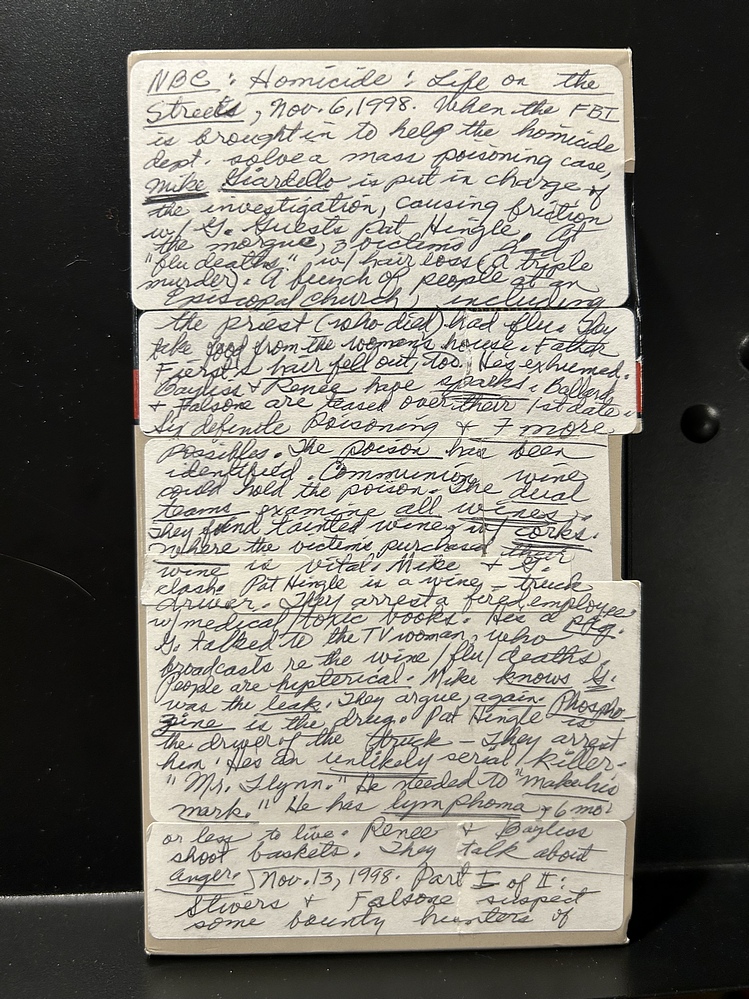 NBC : Homicide : Life on the
Streets, Nov. 6, 1998. When the FBI
is brought in to help the homicide
dept. solve a mass poisoning case,
Mike Giardello is put in charge of
the investigation, causing friction
w/ G. Guests Pat Hingle. At
the morgue, 3 victims
"flu deaths" w/ hair loss (a triple
murder). A bunch of people at an
Episcopal church, including
the priest (who died) had flu. They
take food from the woman's house. Father
hair fell out, too. He's exhumed.
Bayliss & Renee have sparks. Ballard
& Falsone are teased over their 1st date.
Six definite poisoning & 7 more
possibles. The poison has been
identified. Communion wine
could hold the poison. The dual
teams examine all wines.
They find tainted wine w/ corks.
Where the victims purchased their
wine is vital. Mike & G.
clash. Pat Hingle is a wine - truck
driver. They arrest a fired employee
w/ medical/toxic books. He's a
G. talked to the TV woman, who
broadcasts re the wine/flu/deaths.
People are hysterical. Mike knows G.
was the leak. They argue again. Phospho-
zine is the drug. Pat Hingle is
the driver of the truck - They arrest
him. He's an unlikely serial killer -
"Mr. Flynn." He needed to "make his
mark." He has lymphoma & 6 mo.
or less to live. Renee & Bayliss
shoot baskets. They talk about
anger. Nov. 13, 1998. Part I of II:
Stivers & Falsone suspect
some bounty hunters of